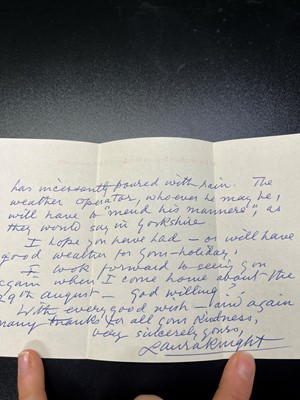 has incessantly poured with rain. The
weather operator, whoever he may be,
will have to "mend his manners", as
they would say in Yorkshire
I hope you have had – or will have
good weather for your holiday,
I look forward to seeing you
again when I come home about the
29th august – God willing?
With every good wish – and again
many thanks for all your kindness,
very sincerely yours,
Laura Knight